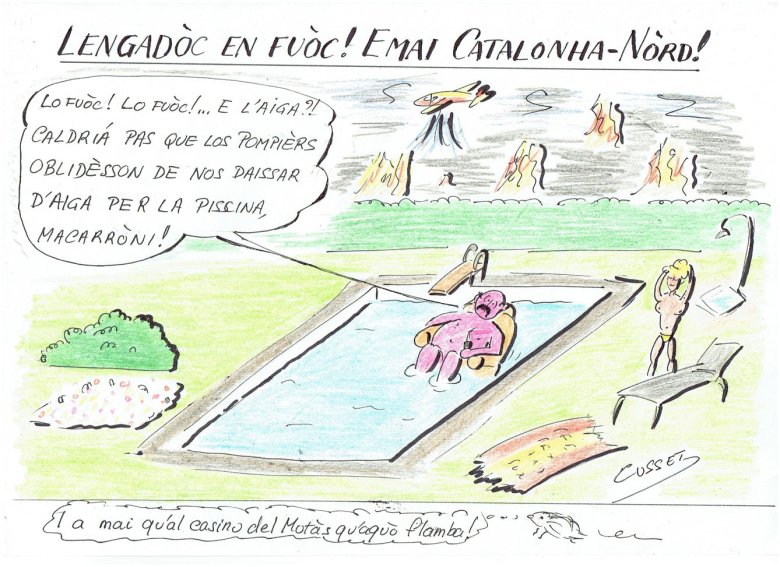 LENGADÒC EN FUÒC! EMAI CATALONHA-NÒRD!
LO FUÒC! LO FUÒC!... E L'AIGA?!
CALDRIÁ PAS QUE LOS POMPIÈRS
OBLIDÈSSON DE NOS DAISSAR
D'AIGA PER LA PISSINA,
MACARRÒNI!
CUSSET
I a mai qu'al casino del Motàs qu'aquò flamba!